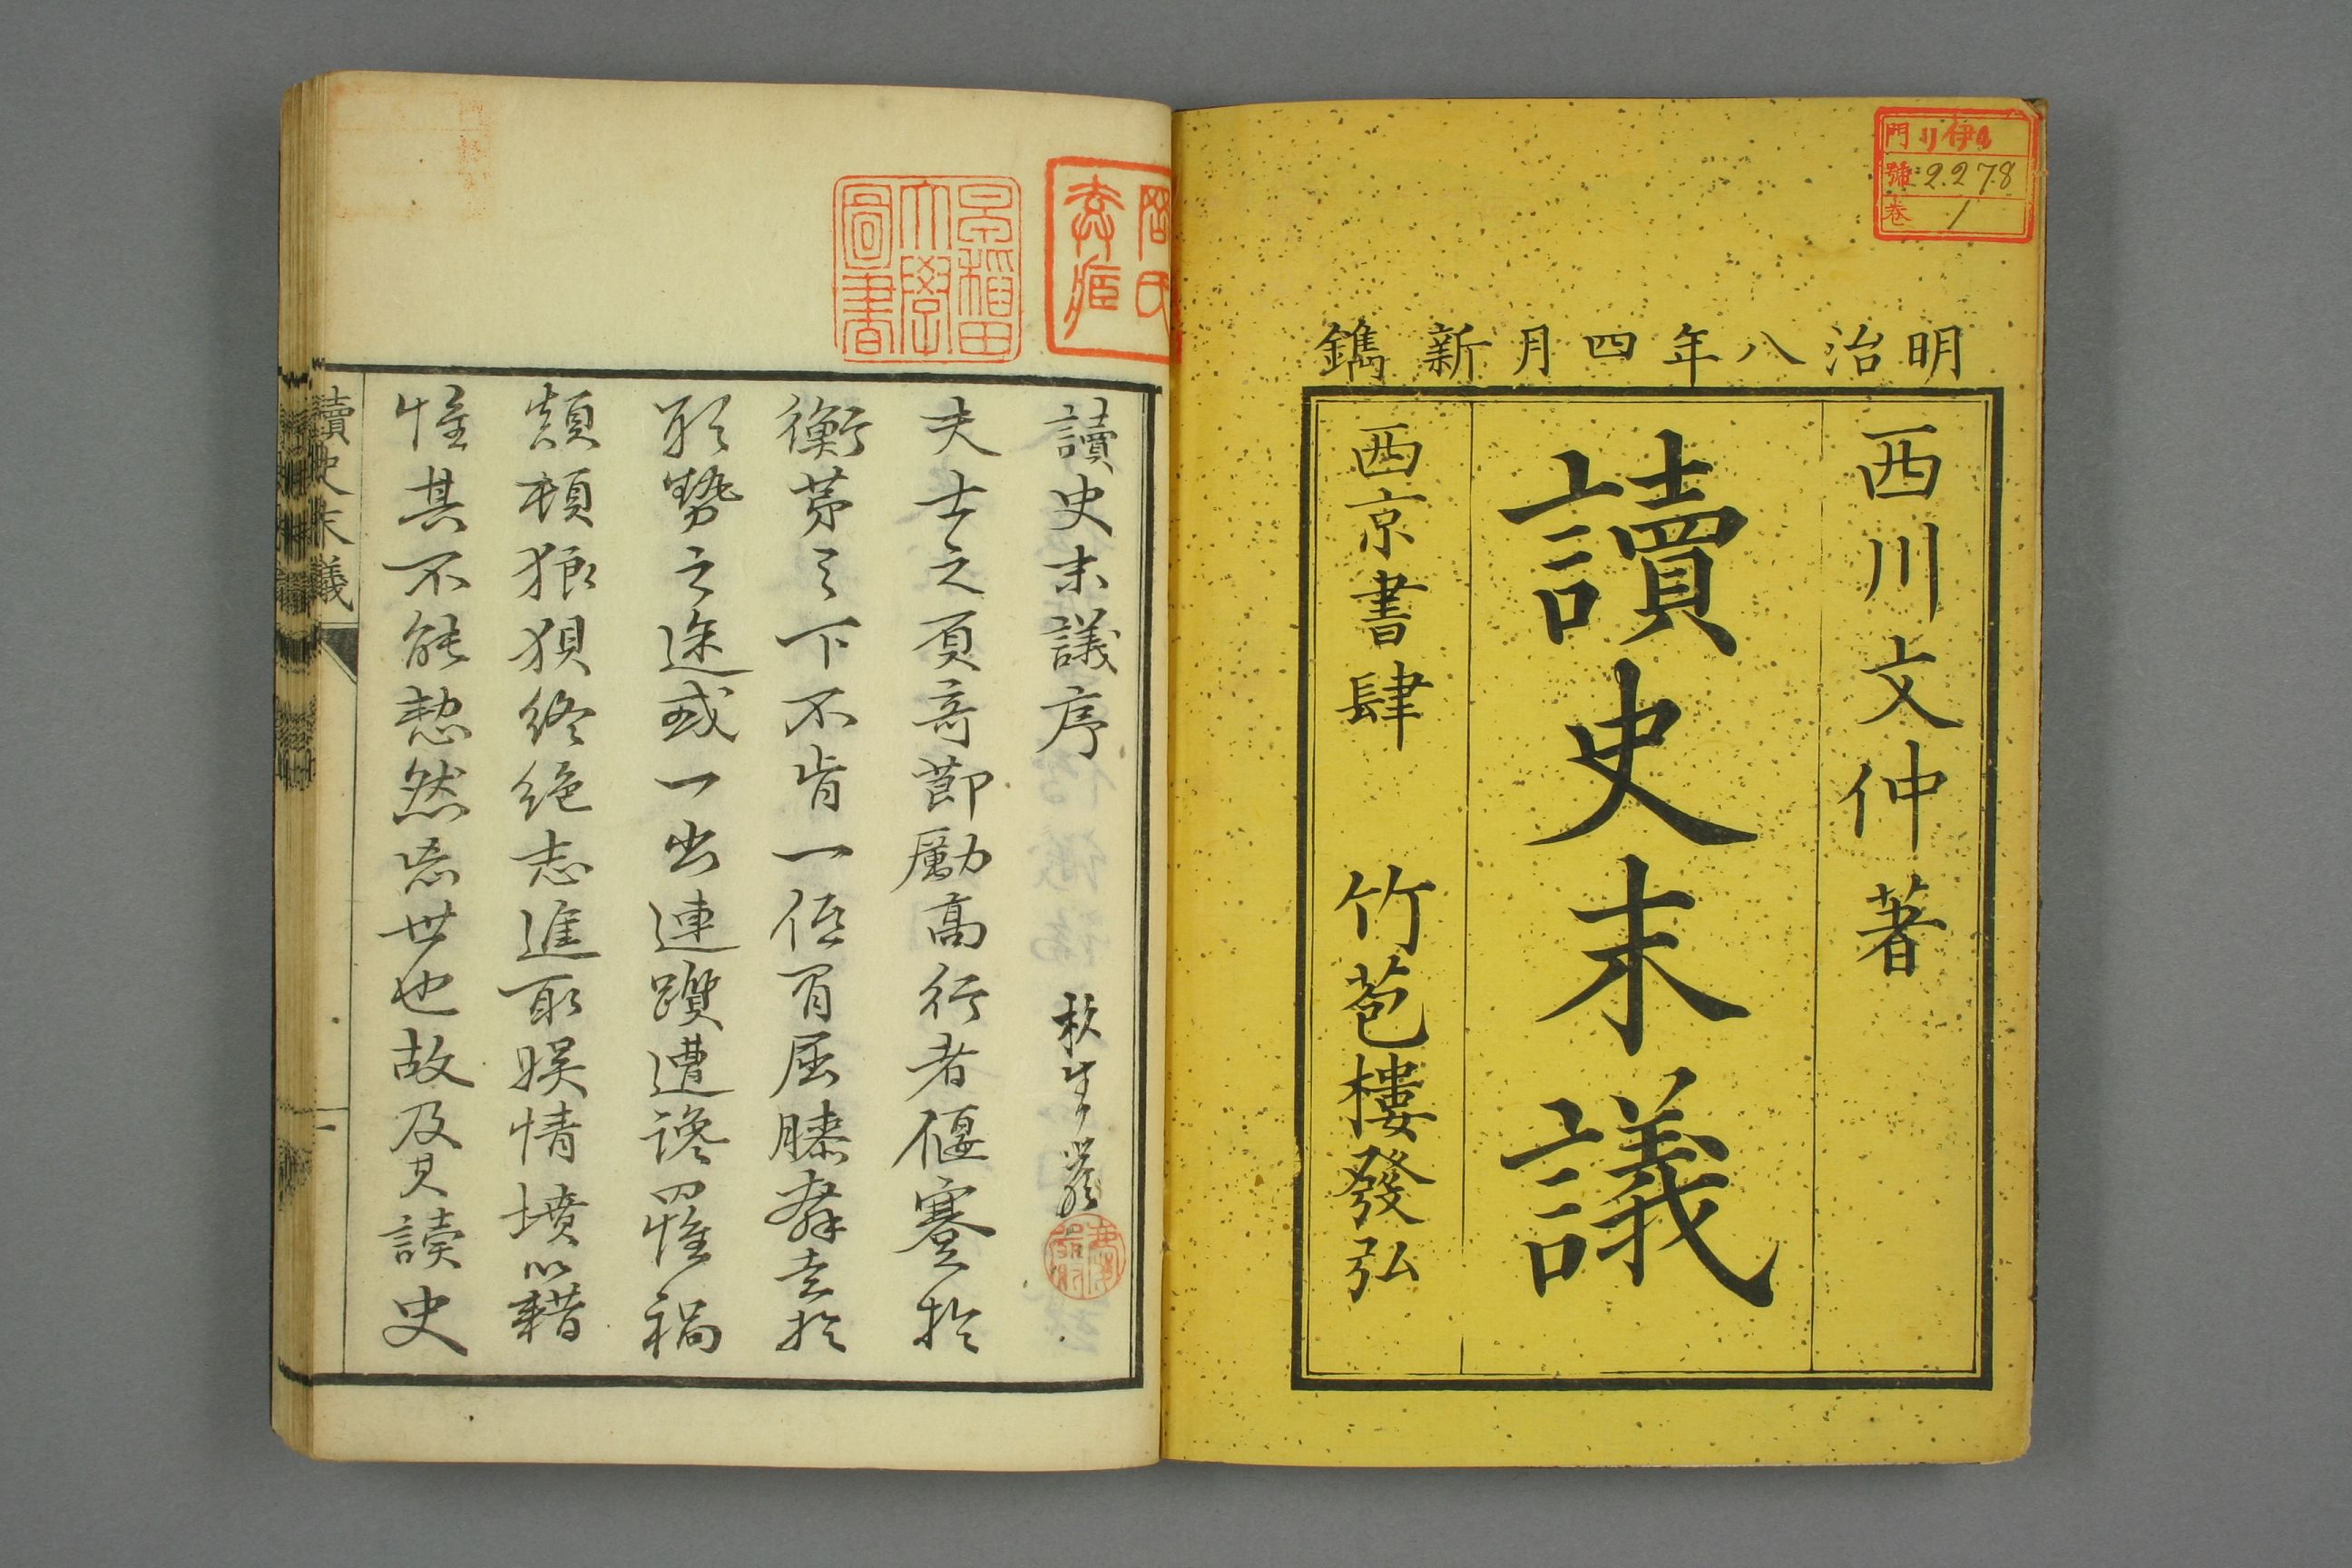 門 リ伊4
號 2278
卷 1
明治八年四月新鐫
西川文仲著
讀史末議
西京書肆 竹苞樓發弘
早稲田大學圖書
讀史末議序
夫士之負奇節勵高行者偃蹇於
衡茅之下不肯一低眉屈膝奔走於
形勢之途或一出連躓遭讒罹禍
顛頓狼狽終絶志進取娯情墳籍
惟其不能恝然忘世也故及其讀史
讀史末議
一